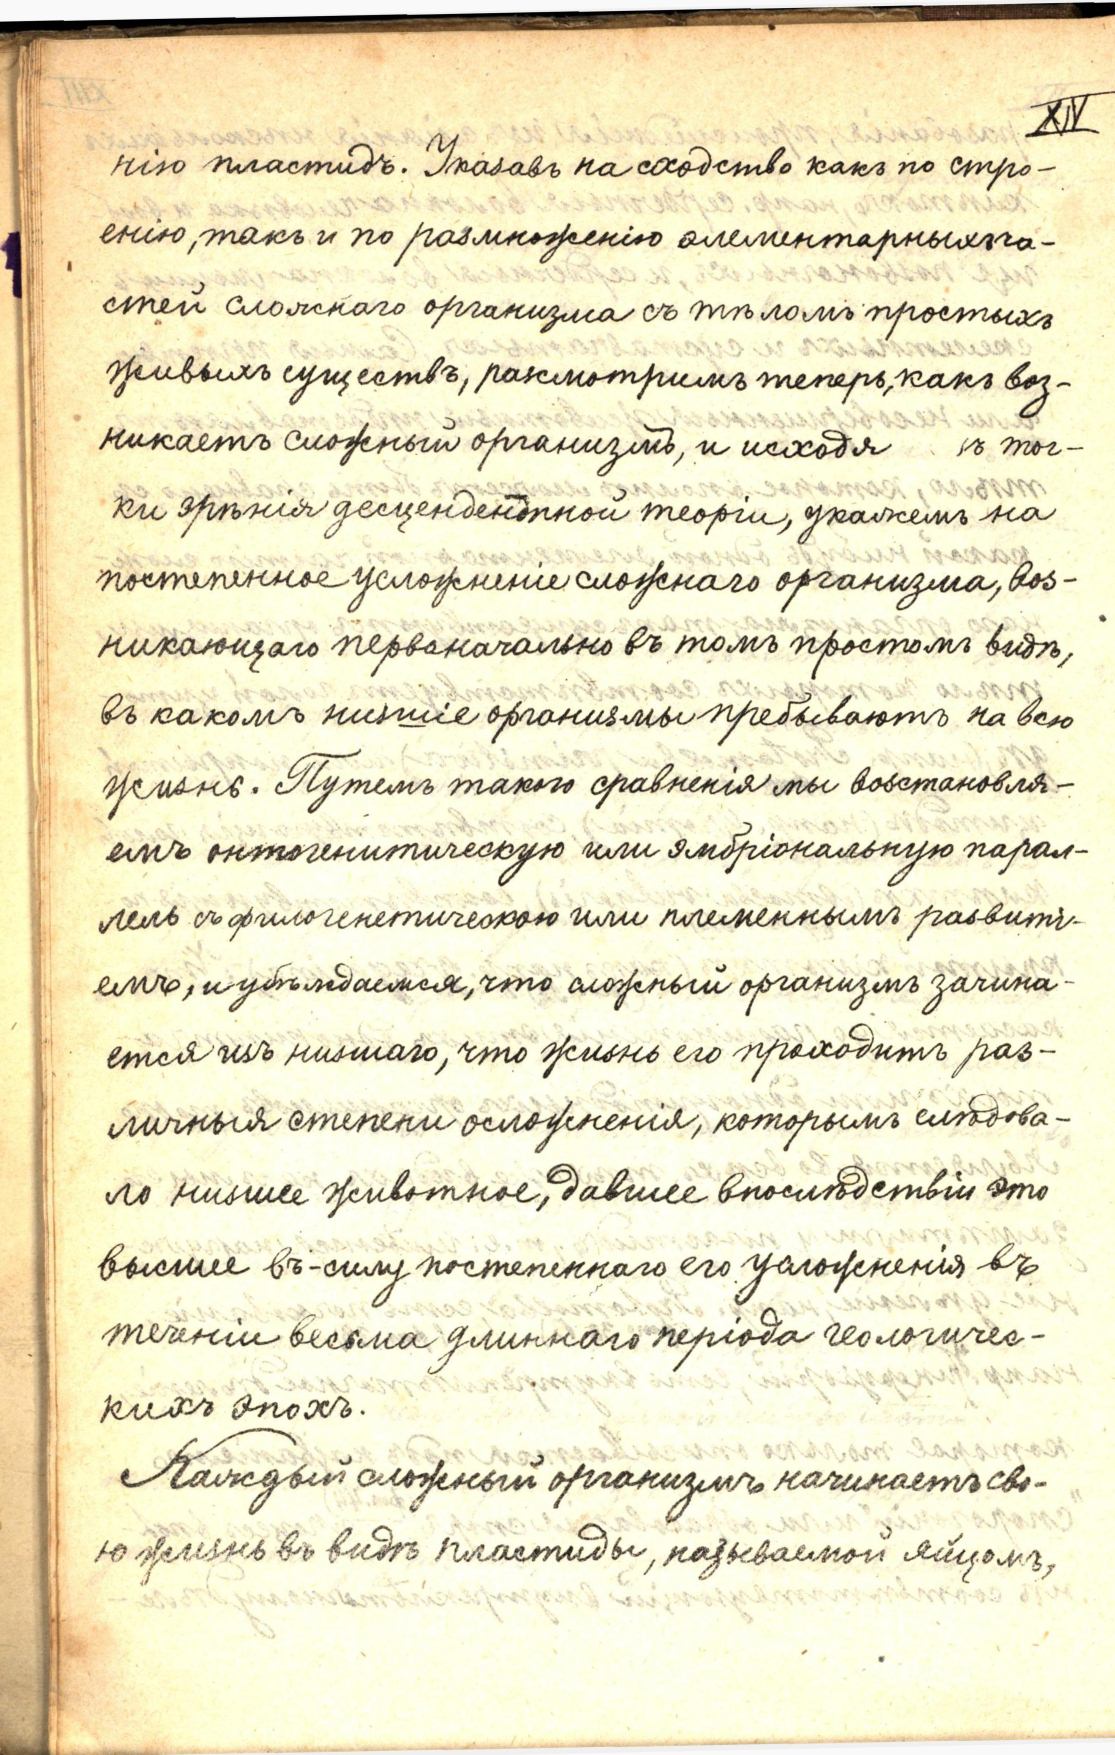 XIV
нію пластидъ. Указавъ на сходство какъ по стро-
енію, такъ и по размноженію элементарныхъ ча-
стей сложнаго организма съ тѣломъ простыхъ
живыхъ существъ, разсмотримъ теперь, какъ воз-
никаетъ сложный организмъ, и исходя съ точ-
ки зрѣнія десцендентной теоріи, укажемъ на
постепенное усложненіе сложнаго организма, воз-
никающаго первоначально въ томъ простомъ видѣ,
въ какомъ низшіе организмы пребываютъ на всю
жизнь. Путемъ такого сравненія мы возстановля-
емъ онтогенитическую или эмбріональную парал-
лель съ филогенетическою или племеннымъ развиті-
емъ, и убѣждаемся, что сложный организмъ зачина-
ется изъ низшаго, что жизнь его проходитъ раз-
личныя степени осложненія, которымъ слѣдова-
ло низшее животное, давшее впослѣдствіи это
высшее въ-силу постепеннаго его усложненія въ
теченіи весьма длиннаго періода геологичес-
кихъ эпохъ.
Каждый сложный организмъ начинаетъ сво-
ю жизнь въ видѣ пластиды, называемой яйцомъ,